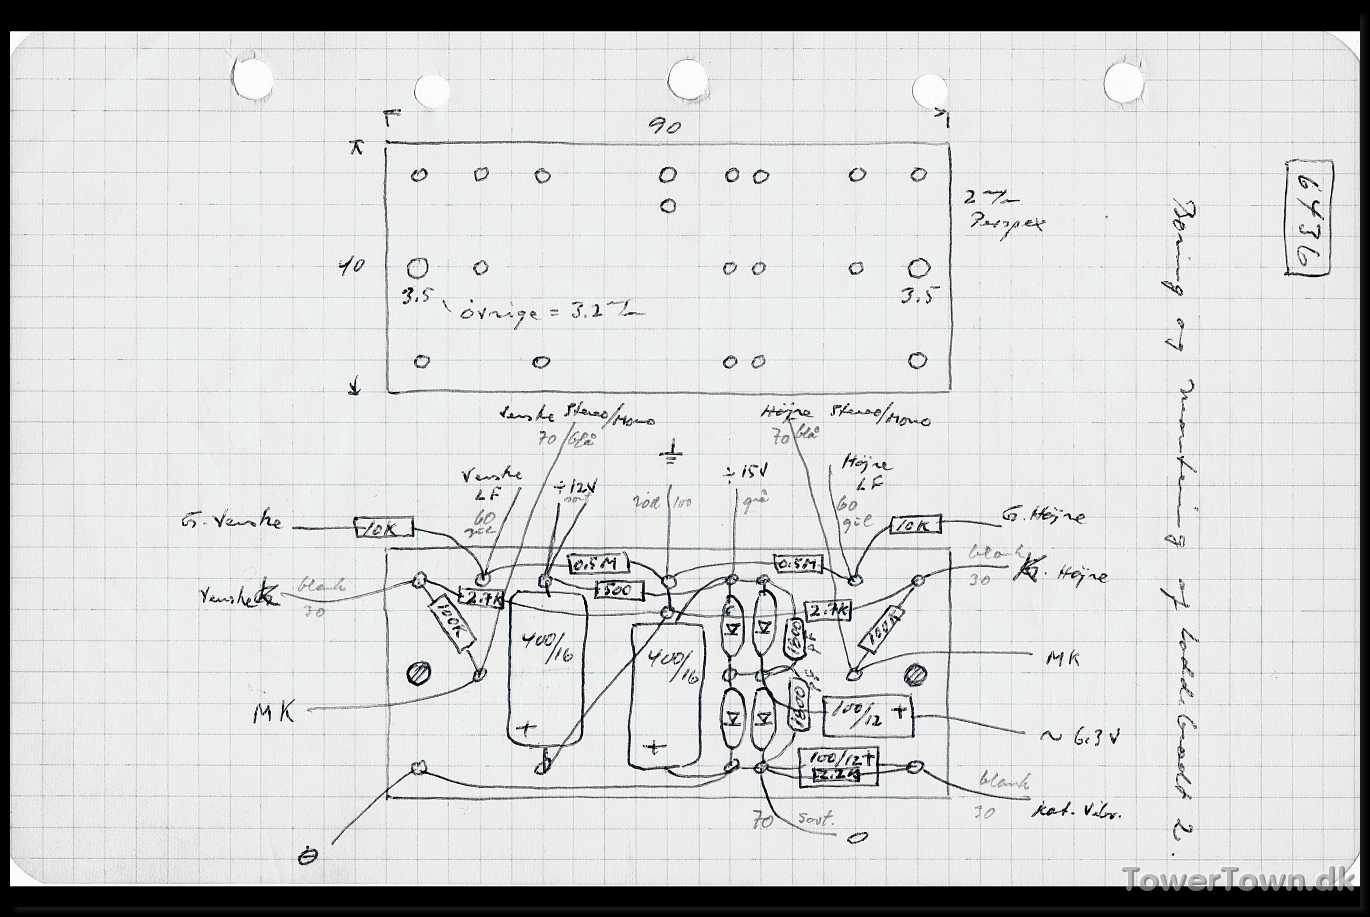 90
2 m/m
Perspex
40
3.5
3.5
øvrige = 3.2 m/m
6436
Boring og montering af loddebrædt 2.
Venstre Stereo/Mono
70 / blå
Højre Stereo/Mono
70 blå
Venstre
LF
60
gul
÷12V
sort
rød 100
÷15V
grå
Højre
LF
60
gul
G. Venstre
10K
10K
G. Højre
Venstre K
blank
30
blank
30
K. Højre
0.5M
0.5M
500
2.7K
2.7K
100K
100K
400/16
+
400/16
+
1800
pF
1800
pF
MK
MK
100/12 +
~ 6.3V
100/12+
2.2K
blank
30
Kat. Vibr.
70 sort.
0
TowerTown.dk